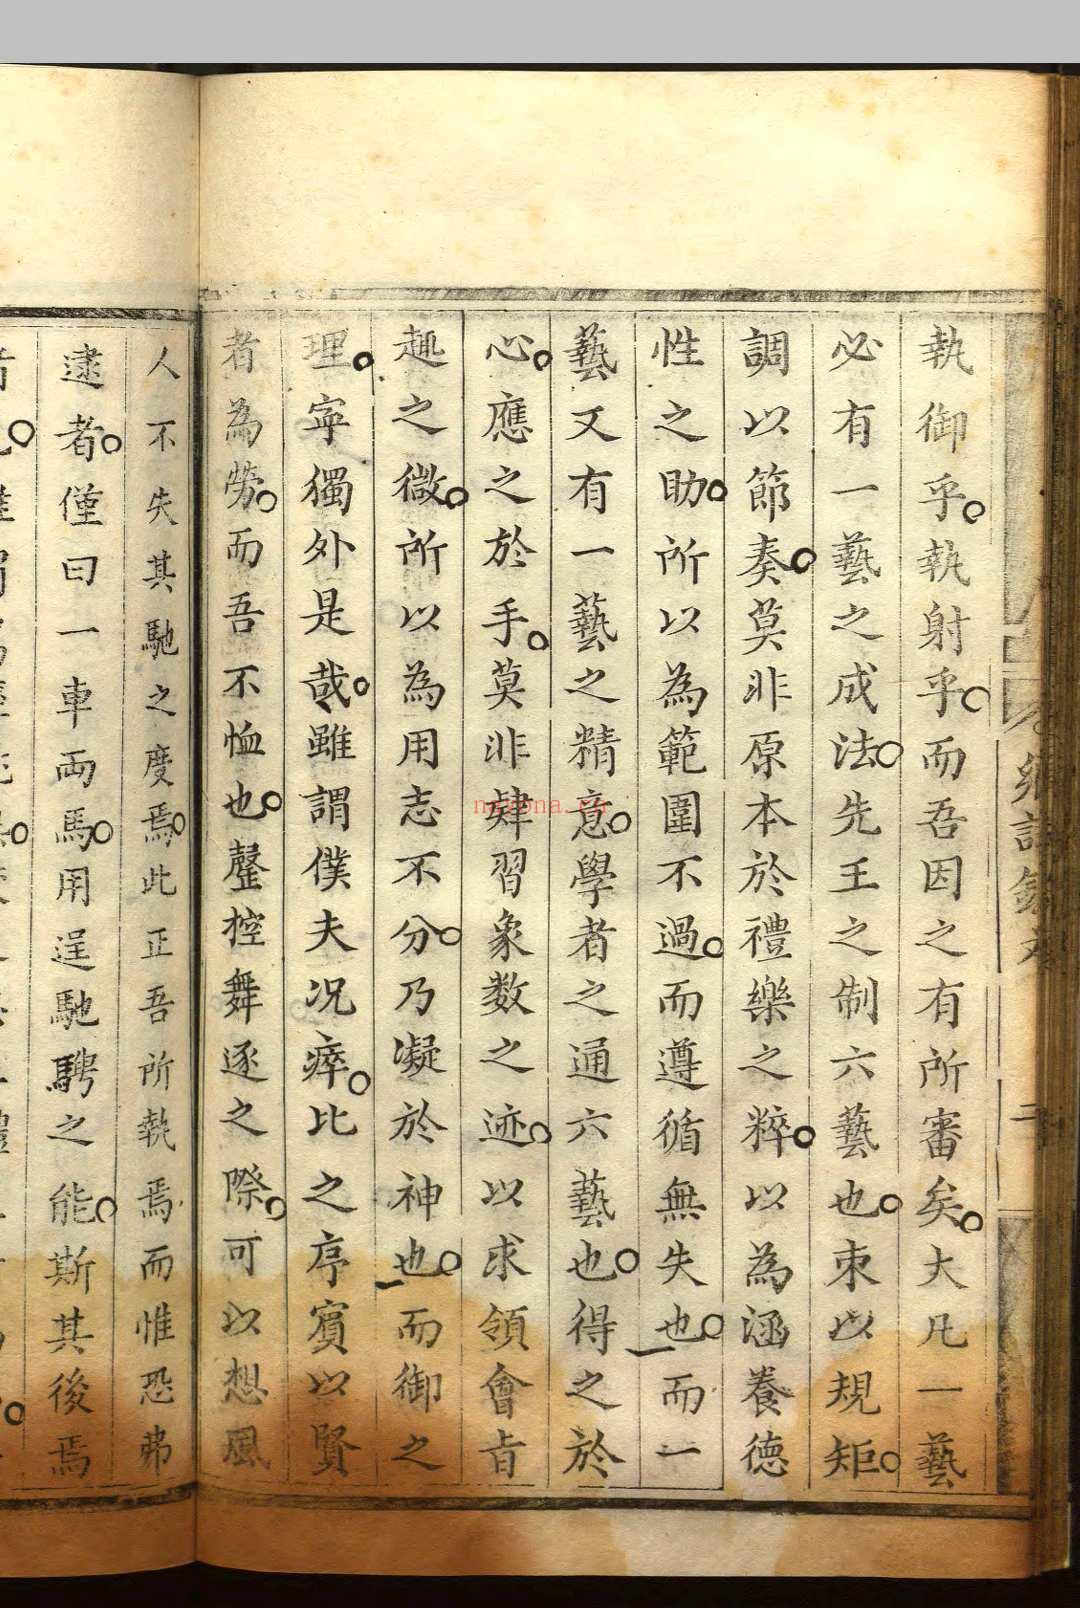 執御乎執射乎而吾因之有所審矣大凡一藝
必有一藝之成法先王之制六藝也朿以規矩
調以節奏莫非原本於禮樂之粹以為涵養德
性之助所以為範圍不過而遵循無失也而一
藝又有一藝之精意學者之通六藝也得之於
心應之於手莫非肄習象数之迹以求領會㫖
趣之微所以為用志不分乃凝於神也而御之
理寧獨外是哉雖謂僕夫况瘁比之序賓以賢
者為勞而吾不恤也罄控舞逐之際可以想風
人不失其馳之度焉此正吾所執焉而惟恐弗
逮者僅曰一車両馬用逞馳騁之能斯其後焉
鄉試
二
nayona.cn